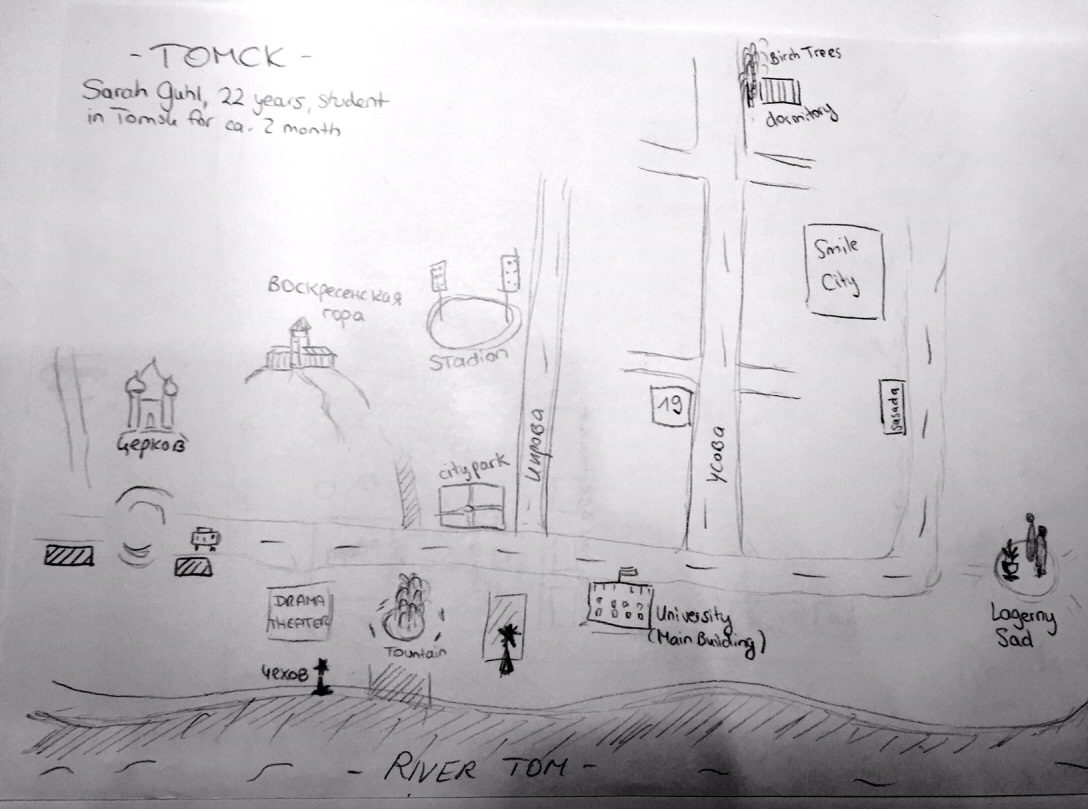 - TOMCK -
Sarah Guhl, 22 years, student
in Tomsk for ca. 2 month
Birch Trees
dormitory
Smile
City
Воскресенская
гора
Stadion
церков
city park
Кирова
19
Усова
sasada
DRAMA
THEATER
Fountain
University
(Main Building)
Lagerny
Sad
Чехов
- RIVER TOM -